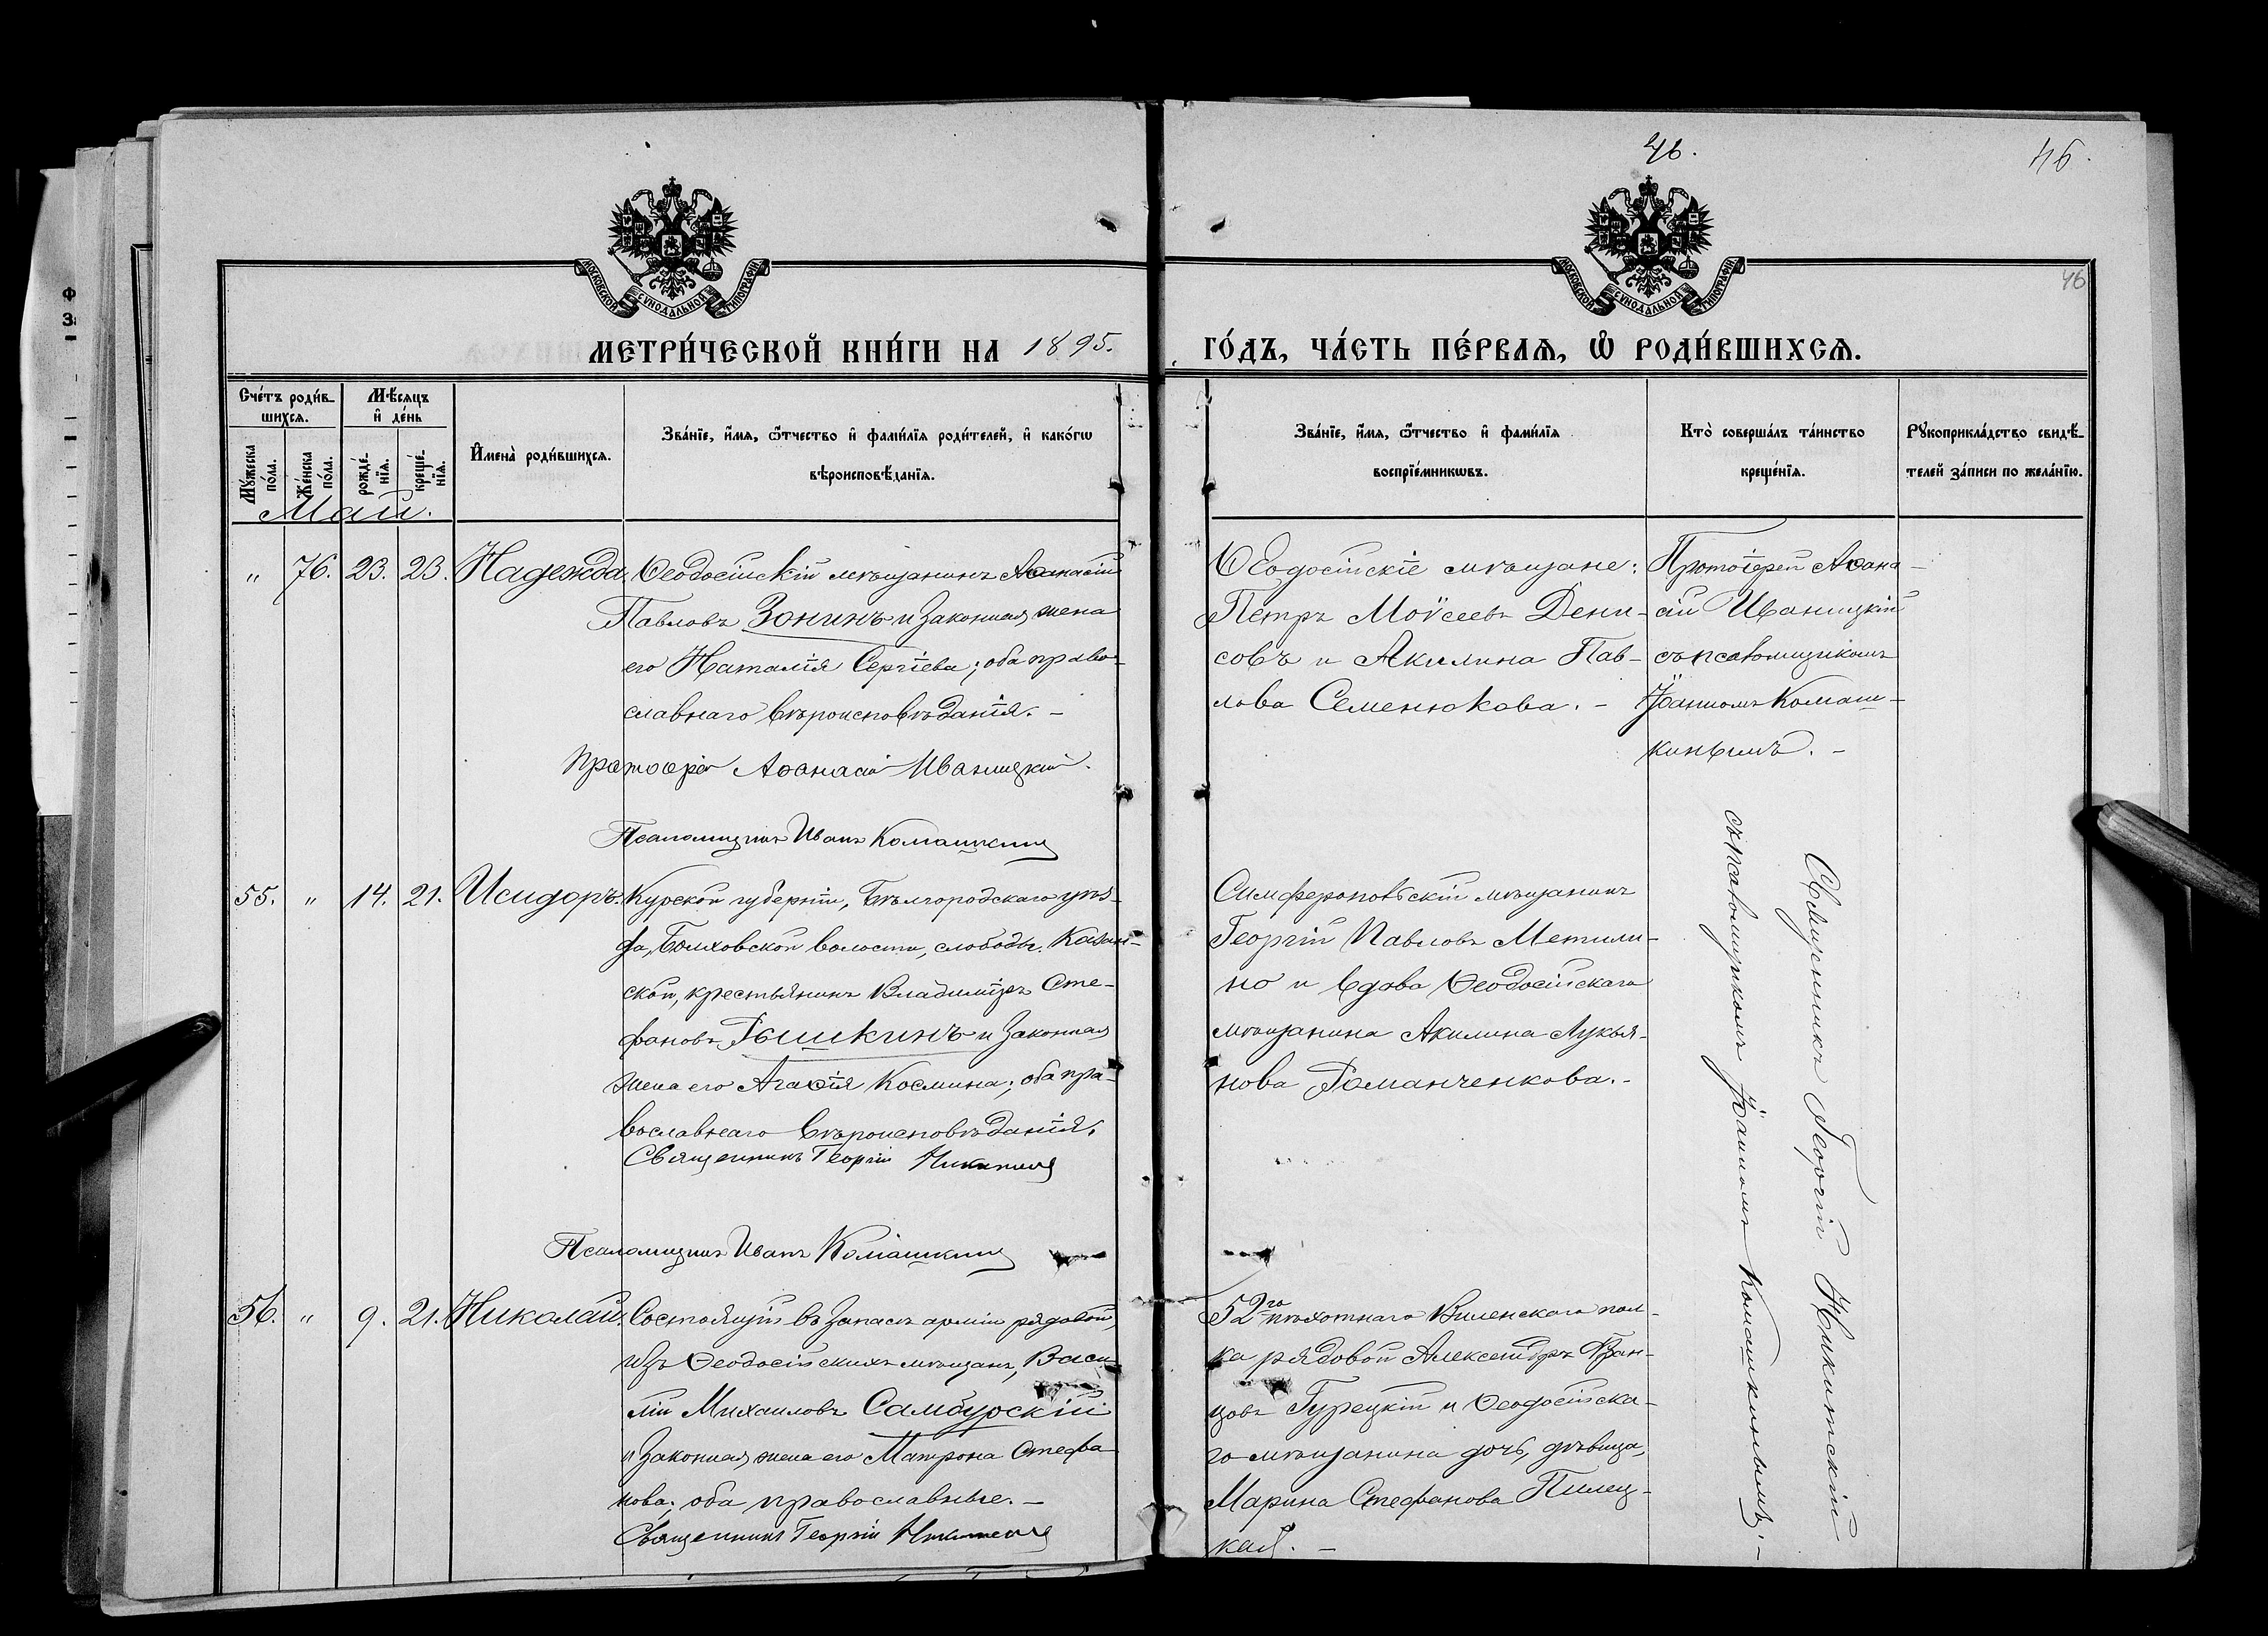 46.
46.
46
МОСКОВСКОЙ СѴНОДАЛЬНОЙ ТИПОГРАФІИ
МОСКОВСКОЙ СѴНОДАЛЬНОЙ ТИПОГРАФІИ
МЕТРИ́ЧЕСКОЙ КНИ́ГИ НА 1895.
ГО́ДЪ, ЧА́СТЬ ПЕ́РВАѦ, Ѡ҆ РОДИ́ВШИХСѦ.
Сче́тъ роди́в-
шихсѧ.
Мꙋ́жеска
по́ла.
Же́нска
по́ла.
Мѣ́сѧцъ
и҆ де́нь
рожде́-
нїѧ.
креще́-
нїѧ.
И҆мена̀ роди́вшихсѧ.
Зва́нїе, и҆́мѧ, ѻ҆́тчество и҆ фами́лїѧ роди́телей, и҆ како́гѡ
вѣроисповѣ́данїѧ.
Зва́нїе, и҆́мѧ, ѻ҆́тчество и҆ фами́лїѧ
воспрїе́мникѡвъ.
Кто̀ соверша́лъ та́инство
креще́нїѧ.
Рꙋкоприкла́дство свидѣ́-
телей за́писи по жела́нїю.
Май.
" 76. 23. 23. Надежда
Ѳеодосійскій мѣщанинъ Аѳанасій
Павловъ Зонинъ и законная жена
его Наталія Сергіева; оба право-
славнаго вѣроисповѣданія. -
Протоіерей Аѳанасій Иваницкій.
Псаломщикъ Иванъ Комашкинъ
Ѳеодосійскіе мѣщане:
Петръ Моѵсеевъ Дени-
совъ и Акилина Пав-
лова Семенюкова. -
Протоіерей Аѳана-
сій Иваницкій
съ псаломщикомъ
Іоанномъ Комаш-
кинымъ. -
55. " 14. 21. Исидоръ.
Курской губерніи, Бѣлгородскаго уѣз-
да, Болховской волости, слободы Казац-
кой, крестьянинъ Владиміръ Сте-
фановъ Рышкинъ и законная
жена его Агаѳія Космина; оба пра-
вославнаго вѣроисповѣданія.
Священникъ Георгій
Псаломщикъ Иванъ Комашкинъ
Симферопольскій мѣщанинъ
Георгій Павловъ Метили-
но и вдова Ѳеодосійскаго
мѣщанина Акилина Лукья-
нова Романченкова. -
Священникъ Георгій Никитскій
съ псаломщикомъ Іоанномъ Комашкинымъ. -
56. " 9. 21. Николай.
Состоящій въ запасѣ арміи рядовой,
изъ Ѳеодосійскихъ мѣщанъ, Васи-
лій Михаиловъ Самбурскій
и законная жена его Матрона Стефа-
нова; оба православные. -
Священникъ Георгій
52го пѣхотнаго Виленскаго пол-
ка рядовой Александръ Фран-
цовъ Гурецкій и Ѳеодосійска-
го мѣщанина дочь, дѣвица,
Марина Стефанова Пилец-
кая. -